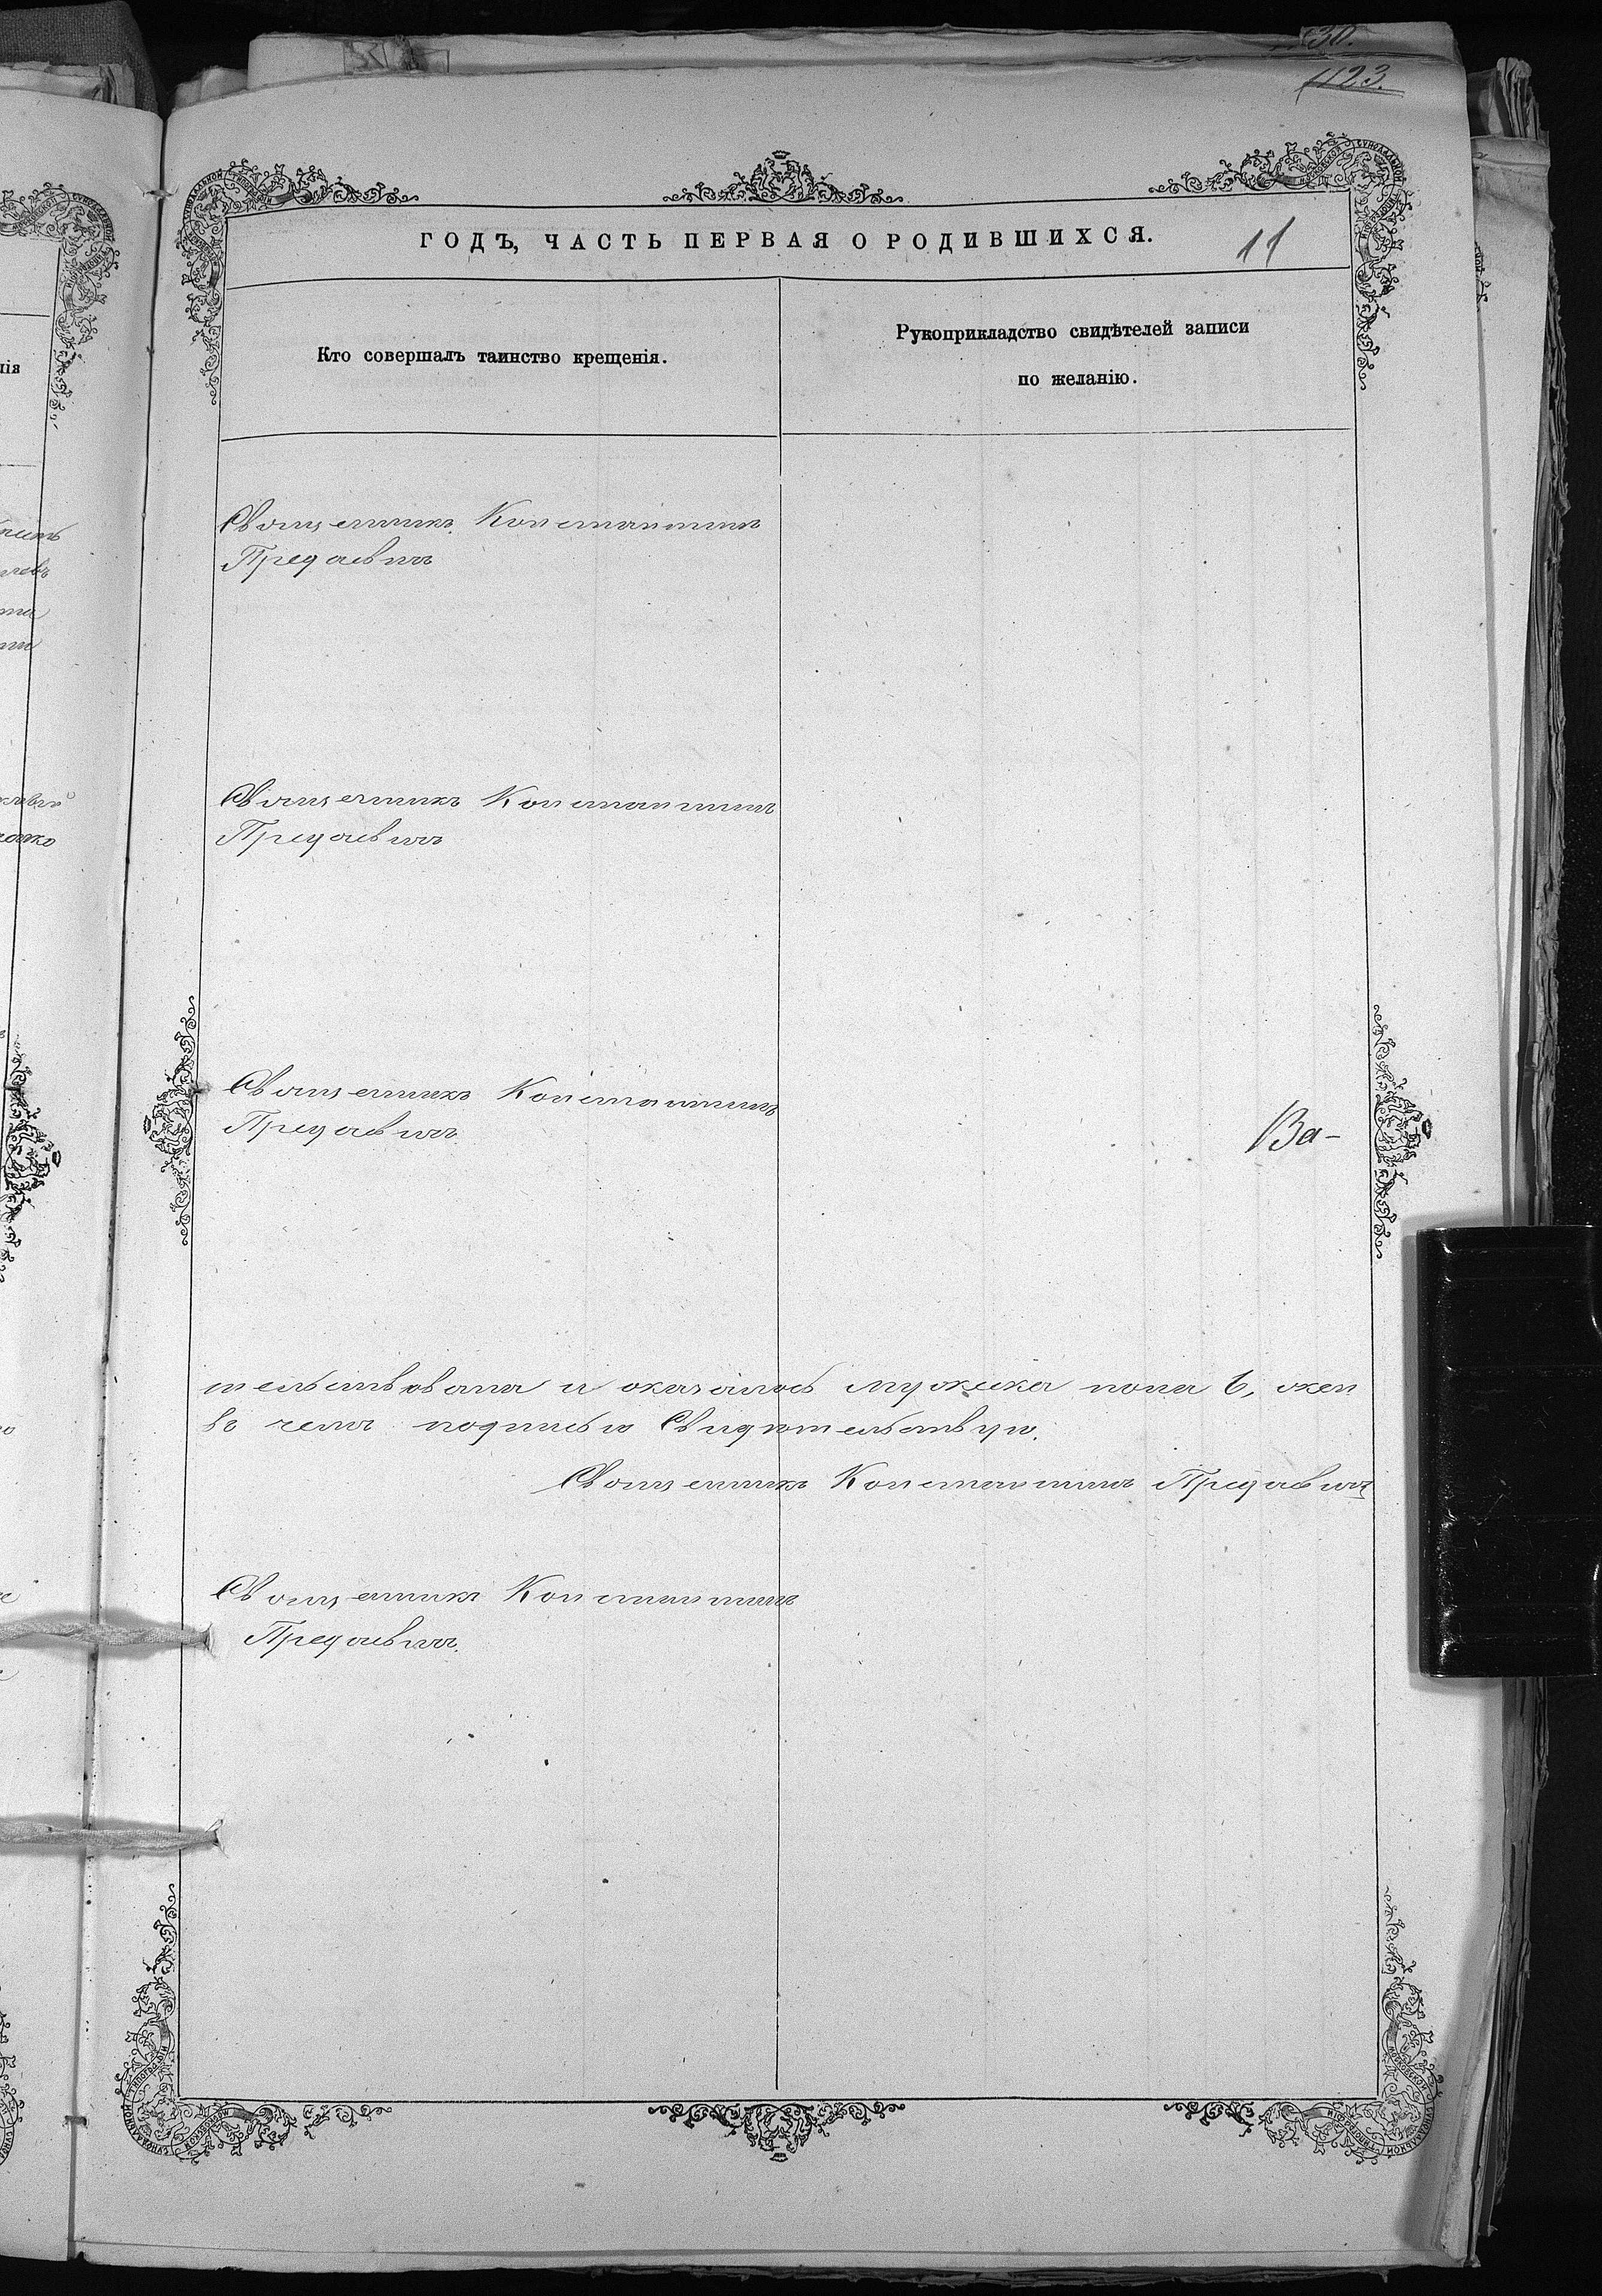 30.
1123.
ГОДЪ, ЧАСТЬ ПЕРВАЯ О РОДИВШИХСЯ.
11
Кто совершалъ таинство крещенія.
Рукоприкладство свидѣтелей записи
по желанію.
Священникъ Константинъ
Предаевичъ
Священникъ Константинъ
Предаевичъ
Священникъ Константинъ
Предаевичъ
Ва-
и оказалось мужска пола 6, жен
въ чемъ подписью Свидѣтельствую.
Священникъ Константинъ Предаевичъ
Священникъ Константинъ
Предаевичъ.